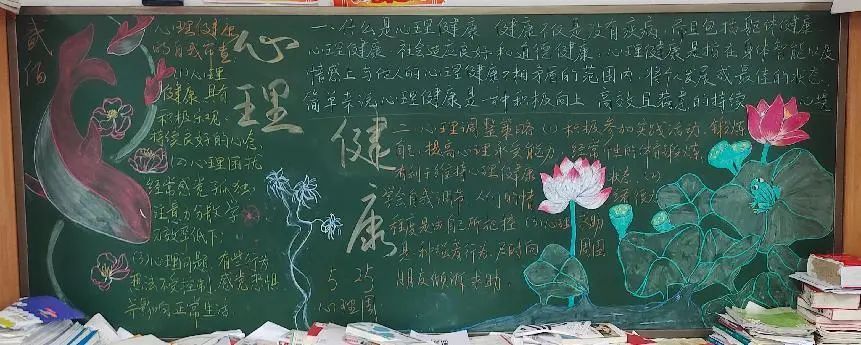 心理健康
的自我市查
(1)心理
健康 具有
积极乐观、
持续良好的心态
(2)心理困扰
经常感觉孤独、
注意力分散 学
习效率低下;
(3)心理问题 有些行为
想法不受控制 感觉恐惧
并影响正常生活
心理健康
5 25
心理周
一、什么是心理健康 健康不仅是没有疾病,而且包括躯体健康
心理健康 社会适应良好和道德健康,心理健康是指在身体智能以及
情感上与他人的心理健康不相矛盾的范围内,将个人发展成最佳的状态
简单来说心理健康是一种积极向上 高效且 的持续 心境
二、心理调整策略 (1) 积极参加实践活动 锻炼
自己 提高心理承受能力 经常性的体育锻炼
有利于维持心理健康 状态 (2)
学会自我调节 人们的情
程度是由自己所把控 (3)心理 助
是 行为 及时向 周围
朋友倾诉求助